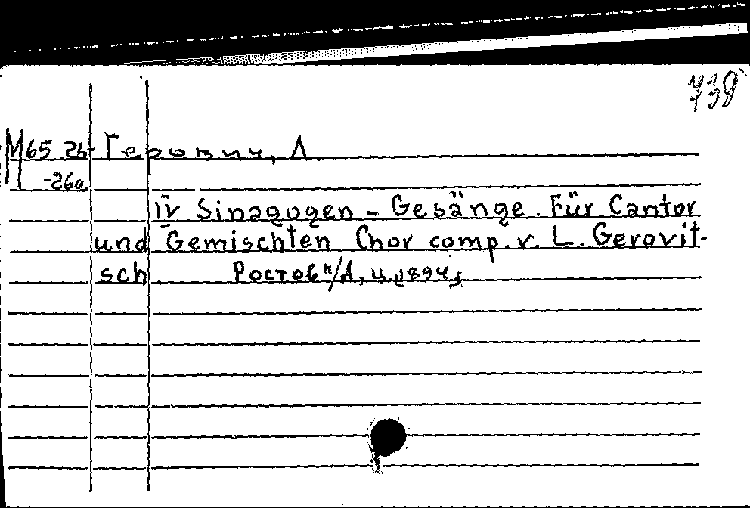 738
М65 2б- Герович, Л
-26а
IV Sinagogen - Gesänge. Für Cantor
und Gemischten Chor comp. v. L. Gerovit-
sch Ростов н/Д, 1894